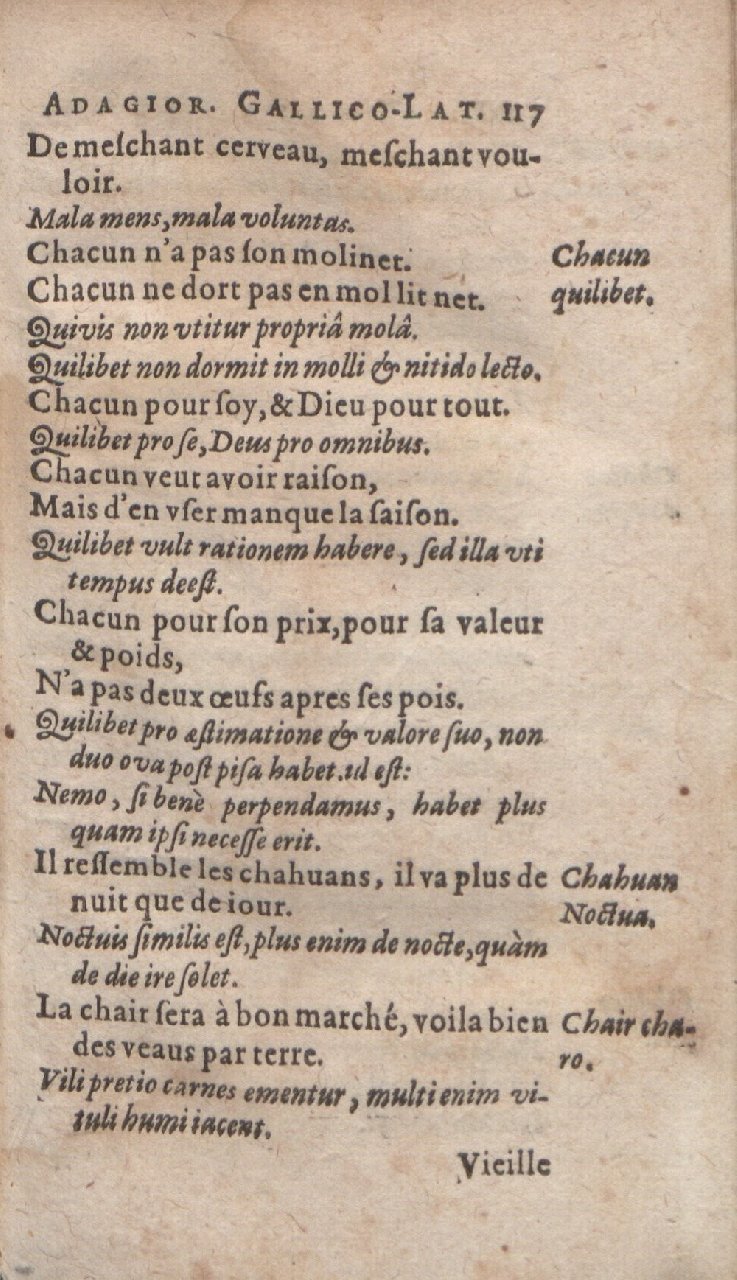 ADAGIOR. GALLICO-LAT. 117
De meſchant cerveau, meſchant vou-
loir.
Mala mens, mala voluntas.
Chacun n'a pas ſon molinet.
Chacun
Chacun ne dort pas en mol lit net.
quilibet.
Quivis non vtitur propriâ molâ.
Quilibet non dormit in molli & nitido lecto.
Chacun pour ſoy, & Dieu pour tout.
Quilibet pro ſe, Deus pro omnibus.
Chacun veut avoir raiſon,
Mais d'en vſer manque la ſaiſon.
Quilibet vult rationem habere, ſed illa vti
tempus deeſt.
Chacun pour ſon prix, pour ſa valeur
& poids,
N'a pas deux œufs apres ſes pois.
Quilibet pro æſtimatione & valore ſuo, non
duo ova poſt piſa habet. id eſt:
Nemo, ſi benè perpendamus, habet plus
quam ipſi neceſſe erit.
Il reſſemble les chahuans, il va plus de
Chahuan
nuit que de iour.
Noctua.
Noctuis ſimilis eſt, plus enim de nocte, quàm
de die ire ſolet.
La chair ſera à bon marché, voila bien
Chair cha-
des veaus par terre.
ro.
Vili pretio carnes ementur, multi enim vi-
tuli humi iacent.
Vieille